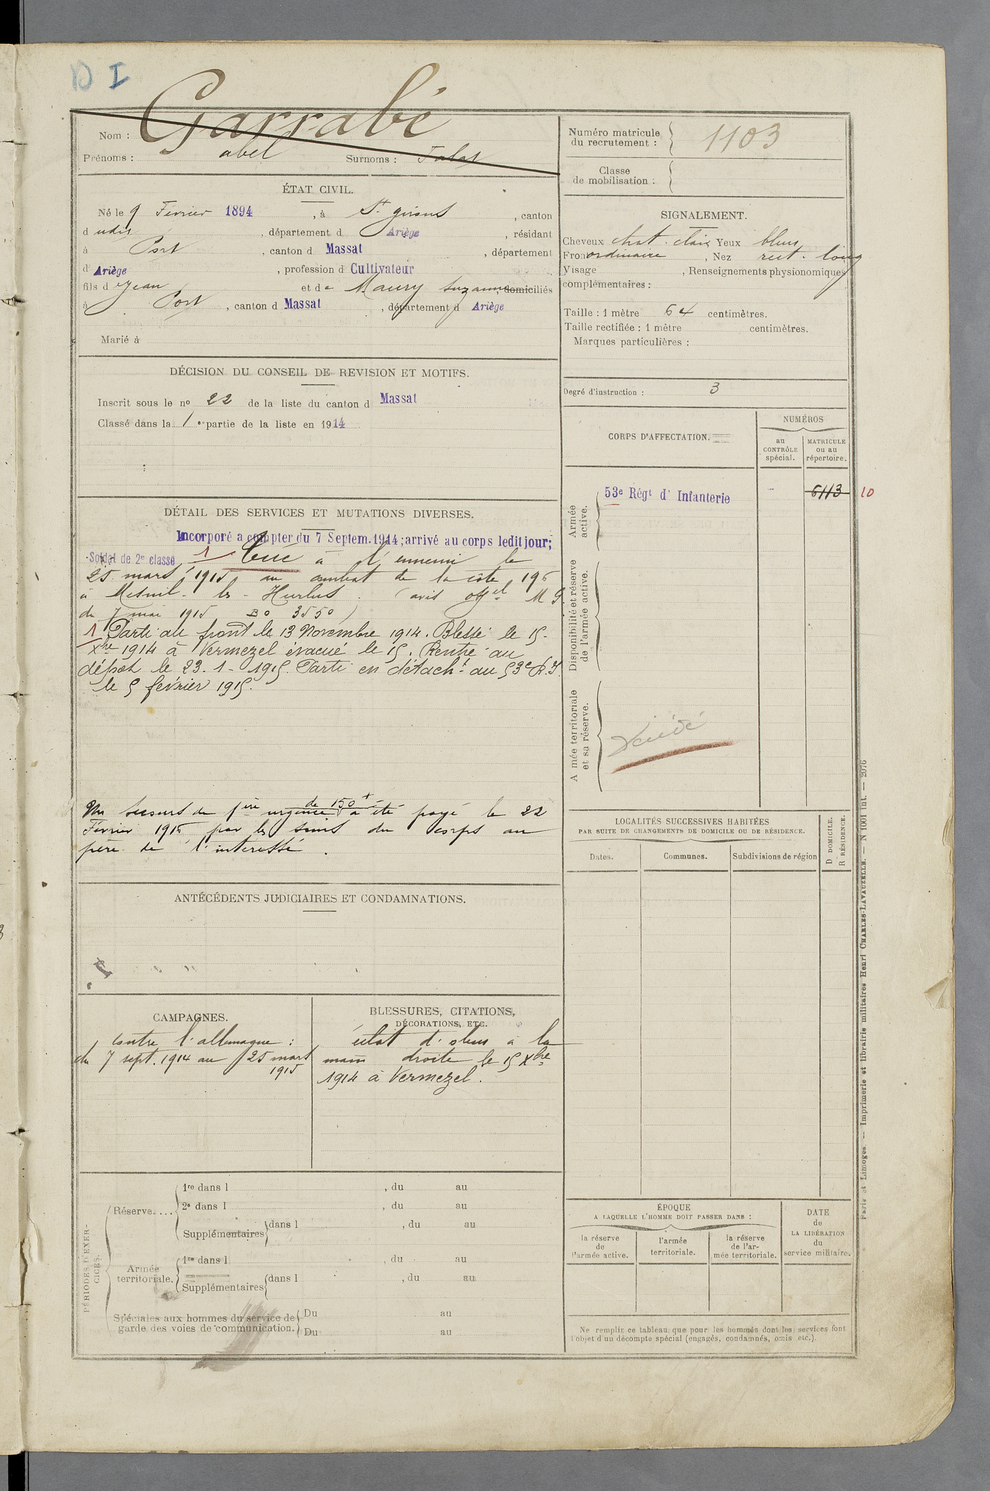 D I
Garrabé
Nom :
Prénoms : abel Surnoms : Talas
Numéro matricule du recrutement : 1103
Classe de mobilisation :
ÉTAT CIVIL.
Né le 9 Février 1894, à St girons, canton
d udit, département d Ariège, résidant
à Port, canton d Massat, département
d Ariège, profession d Cultivateur
fils d e Jean et de Maury Suzanne domiciliés
à Port, canton d Massat, département d Ariège
Marié à
SIGNALEMENT.
Cheveux chat. clair Yeux bleus
Front ordinaire, Nez rect. long
Visage, Renseignements physionomiques
complémentaires :
Taille : 1 mètre 64 centimètres.
Taille rectifiée : 1 mètre centimètres.
Marques particulières :
DÉCISION DU CONSEIL DE REVISION ET MOTIFS.
Inscrit sous le no 22 de la liste du canton d Massat
Classé dans la 1 re partie de la liste en 1914
Degré d'instruction : 3
CORPS D'AFFECTATION.
NUMÉROS
au CONTRÔLE spécial.
MATRICULE ou au répertoire.
Armée active.
53e Régt d' Infanterie
6113 10
Disponibilité et réserve de l'armée active.
Armée territoriale et sa réserve.
DÉTAIL DES SERVICES ET MUTATIONS DIVERSES.
Incorporé a compter du 7 Septem. 1914 ; arrivé au corps ledit jour ;
Soldat de 2e classe 1 Tué à l'ennemi le
25 mars 1915 au combat de la côte 196
à Mesnil-les-Hurlus. (avis offel M G
du 7 mai 1915 BO 3550)
1 Parti au front le 13 Novembre 1914. Blessé le 15-
Xbre 1914 à Vermezel évacué le 15. Rentré au
dépôt le 23-1-1915. Parti en détacht au 53e R.I.
le 5 février 1915.
Un secours de 1ère urgence de 150 f a été payé le 22
Février 1916 par les soins du corps au
père de l'intéressé.
ANTÉCÉDENTS JUDICIAIRES ET CONDAMNATIONS.
CAMPAGNES.
Contre l'allemagne :
du 7 sept. 1914 au 25 mars
1915
BLESSURES, CITATIONS,
DÉCORATIONS, ETC.
éclat d'obus à la
main droite le 15 Xbre
1914 à Vermezel.
LOCALITÉS SUCCESSIVES HABITÉES
PAR SUITE DE CHANGEMENTS DE DOMICILE OU DE RÉSIDENCE.
Dates. Communes. Subdivisions de région
D DOMICILE.
R RÉSIDENCE.
PÉRIODES D'EXERCICES.
Réserve....
1re dans l , du au
2e dans l , du au
Supplémentaires dans l , du au
Armée territoriale.
1re dans l , du au
Supplémentaires dans l , du au
Spéciales aux hommes du service de
garde des voies de communication.
Du au
Du au
ÉPOQUE
A LAQUELLE L'HOMME DOIT PASSER DANS :
la réserve de l'armée active.
l'armée territoriale.
la réserve de l'armée territoriale.
DATE
de
LA LIBÉRATION
du
service militaire.
Ne remplir ce tableau que pour les hommes dont les services font
l'objet d'un décompte spécial (engagés, condamnés, omis etc.).
Paris et Limoges. — Imprimerie et librairie militaires Henri CHARLES-LAVAUZELLE. — N 1001 int. — 2076